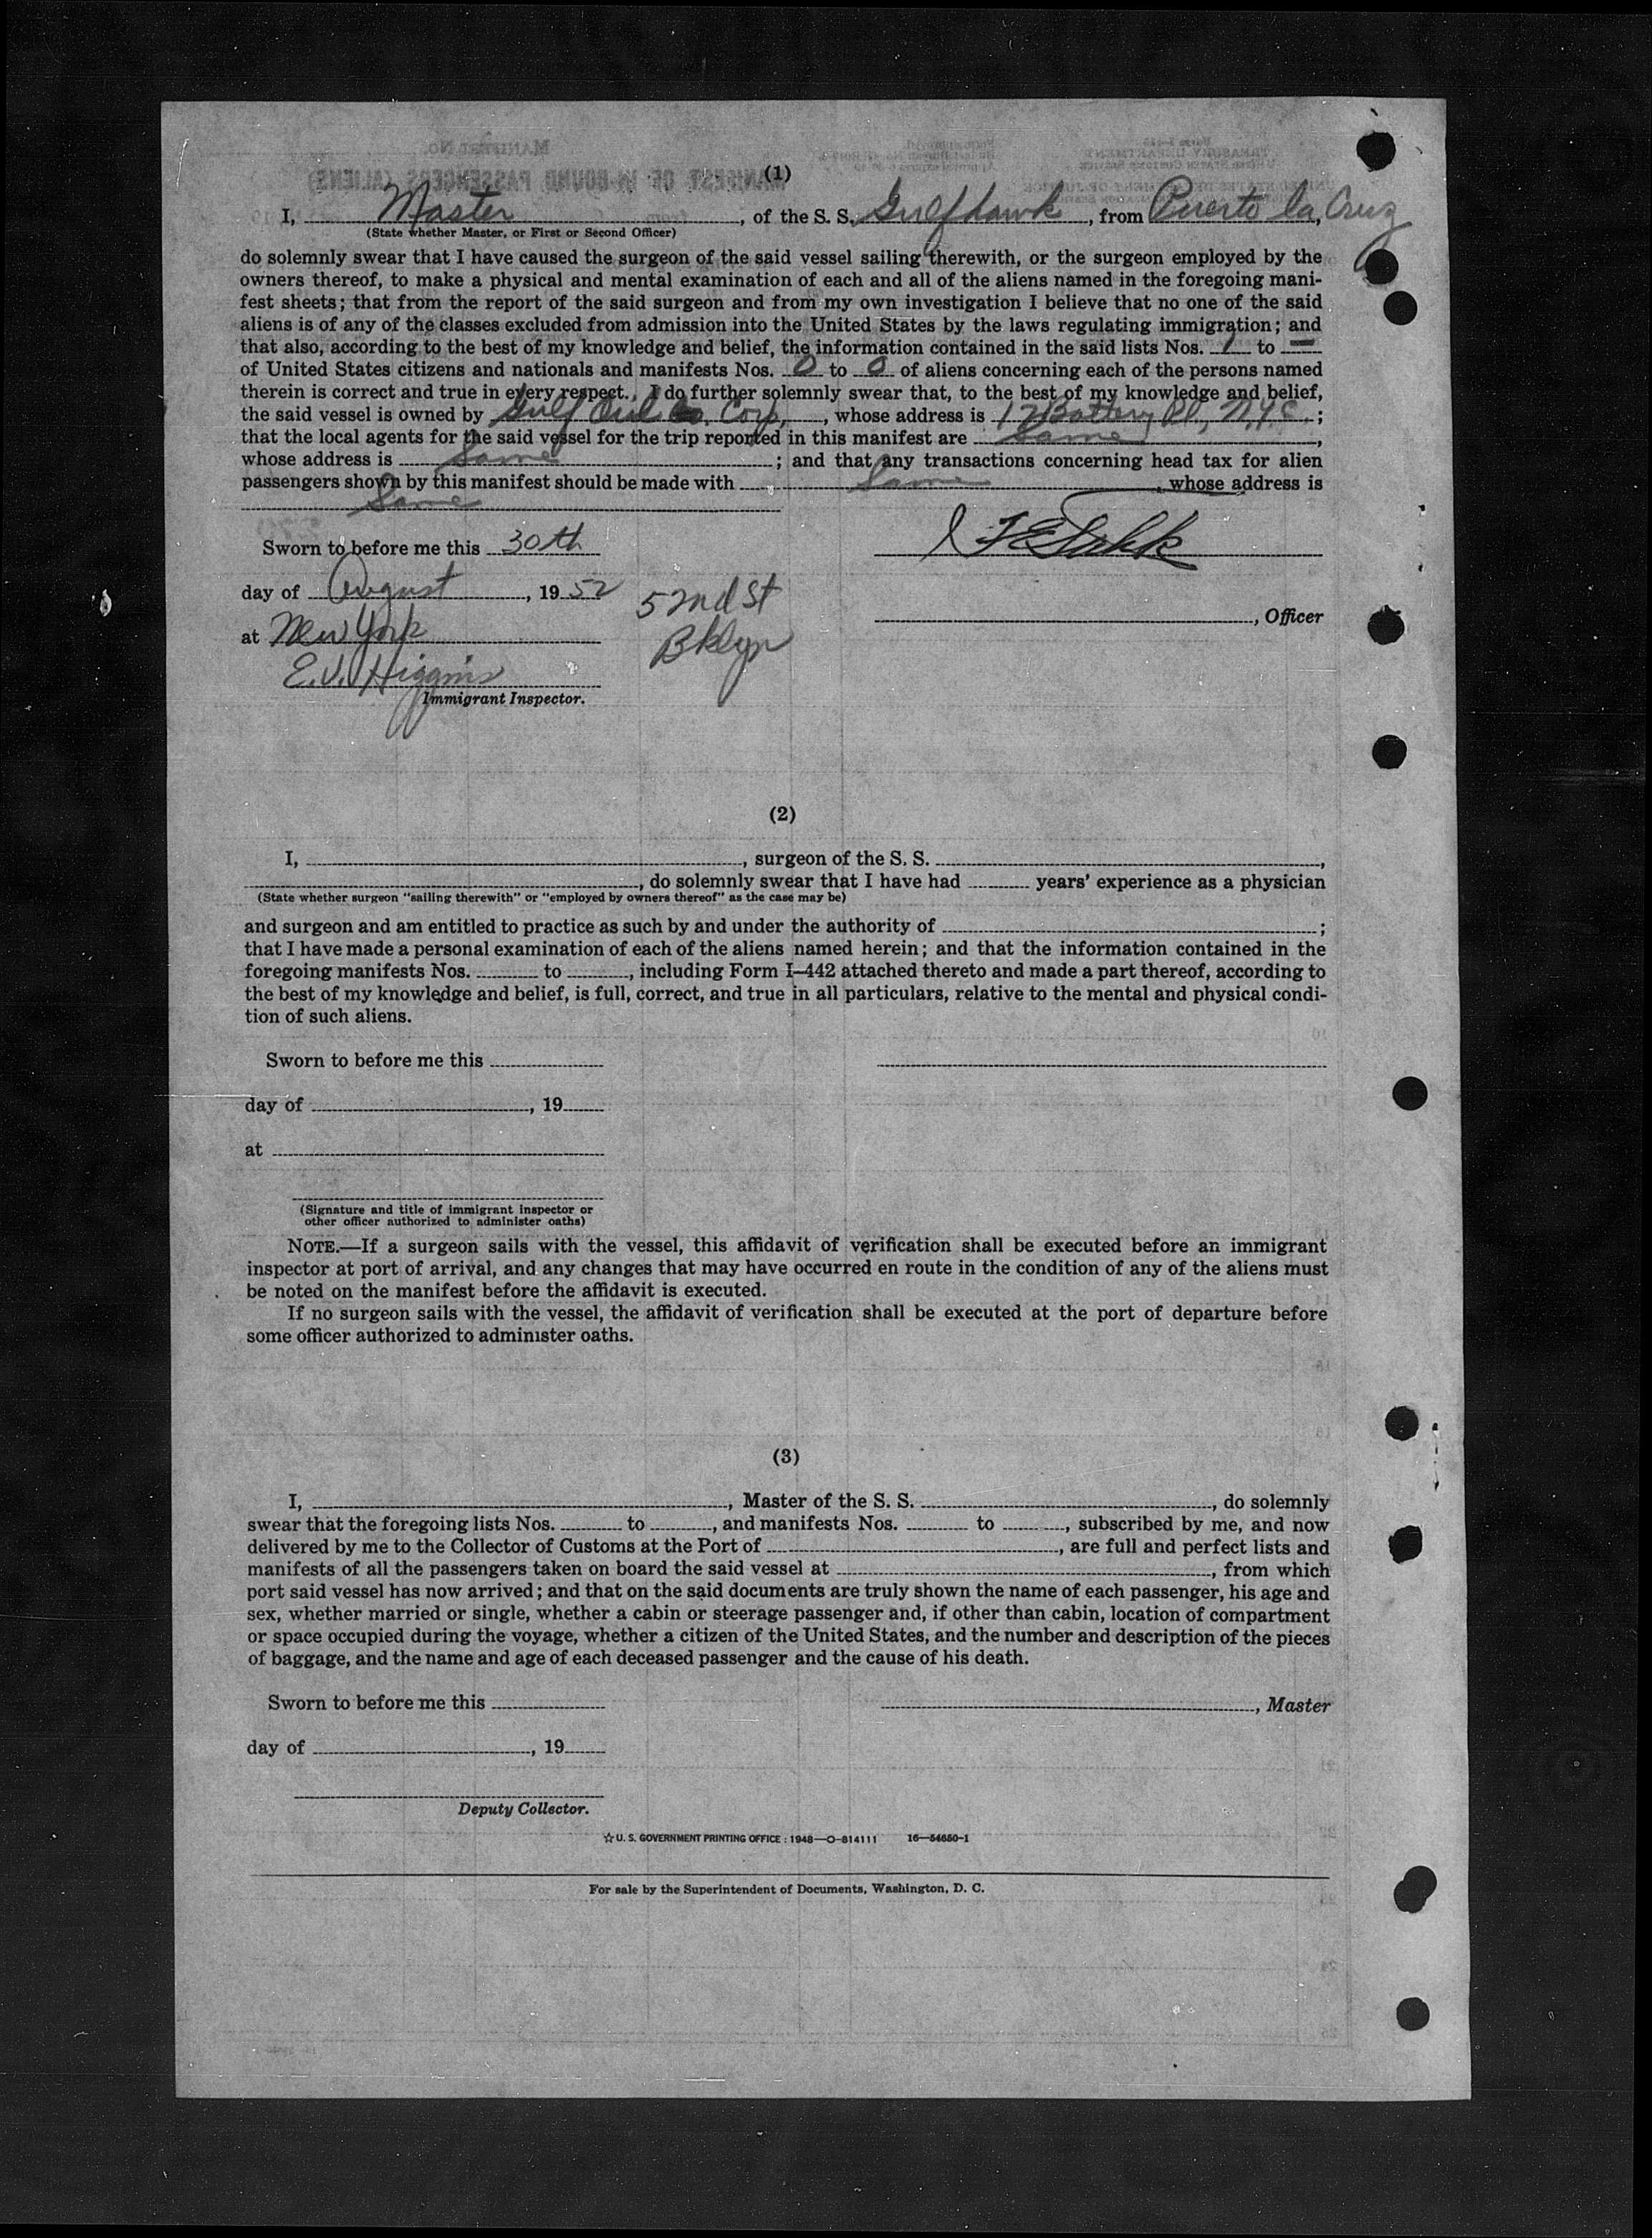 (1)
I, Master, of the S. S. Gulfhawk, from Puerto la Cruz,
(State whether Master, or First or Second Officer)
do solemnly swear that I have caused the surgeon of the said vessel sailing therewith, or the surgeon employed by the
owners thereof, to make a physical and mental examination of each and all of the aliens named in the foregoing mani-
fest sheets; that from the report of the said surgeon and from my own investigation I believe that no one of the said
aliens is of any of the classes excluded from admission into the United States by the laws regulating immigration; and
that also, according to the best of my knowledge and belief, the information contained in the said lists Nos. 1 to —
of United States citizens and nationals and manifests Nos. 0 to 0 of aliens concerning each of the persons named
therein is correct and true in every respect. I do further solemnly swear that, to the best of my knowledge and belief,
the said vessel is owned by Gulf Oil Corp., whose address is 17 Battery Pl., N.Y.C.;
that the local agents for the said vessel for the trip reported in this manifest are Same,
whose address is Same; and that any transactions concerning head tax for alien
passengers shown by this manifest should be made with Same, whose address is
Same
Sworn to before me this 30th
day of August, 1952 52nd St
, Officer
at New York Bklyn
E. J. Higgins
Immigrant Inspector.
(2)
I, , surgeon of the S. S. ,
, do solemnly swear that I have had years' experience as a physician
(State whether surgeon "sailing therewith" or "employed by owners thereof" as the case may be)
and surgeon and am entitled to practice as such by and under the authority of ;
that I have made a personal examination of each of the aliens named herein; and that the information contained in the
foregoing manifests Nos. to , including Form I–442 attached thereto and made a part thereof, according to
the best of my knowledge and belief, is full, correct, and true in all particulars, relative to the mental and physical condi-
tion of such aliens.
Sworn to before me this
day of , 19
at
(Signature and title of immigrant inspector or
other officer authorized to administer oaths)
NOTE.—If a surgeon sails with the vessel, this affidavit of verification shall be executed before an immigrant
inspector at port of arrival, and any changes that may have occurred en route in the condition of any of the aliens must
be noted on the manifest before the affidavit is executed.
If no surgeon sails with the vessel, the affidavit of verification shall be executed at the port of departure before
some officer authorized to administer oaths.
(3)
I, , Master of the S. S. , do solemnly
swear that the foregoing lists Nos. to , and manifests Nos. to , subscribed by me, and now
delivered by me to the Collector of Customs at the Port of , are full and perfect lists and
manifests of all the passengers taken on board the said vessel at , from which
port said vessel has now arrived; and that on the said documents are truly shown the name of each passenger, his age and
sex, whether married or single, whether a cabin or steerage passenger and, if other than cabin, location of compartment
or space occupied during the voyage, whether a citizen of the United States, and the number and description of the pieces
of baggage, and the name and age of each deceased passenger and the cause of his death.
Sworn to before me this
, Master
day of , 19
Deputy Collector.
☆ U. S. GOVERNMENT PRINTING OFFICE : 1948—O-814111 16—54650-1
For sale by the Superintendent of Documents, Washington, D. C.